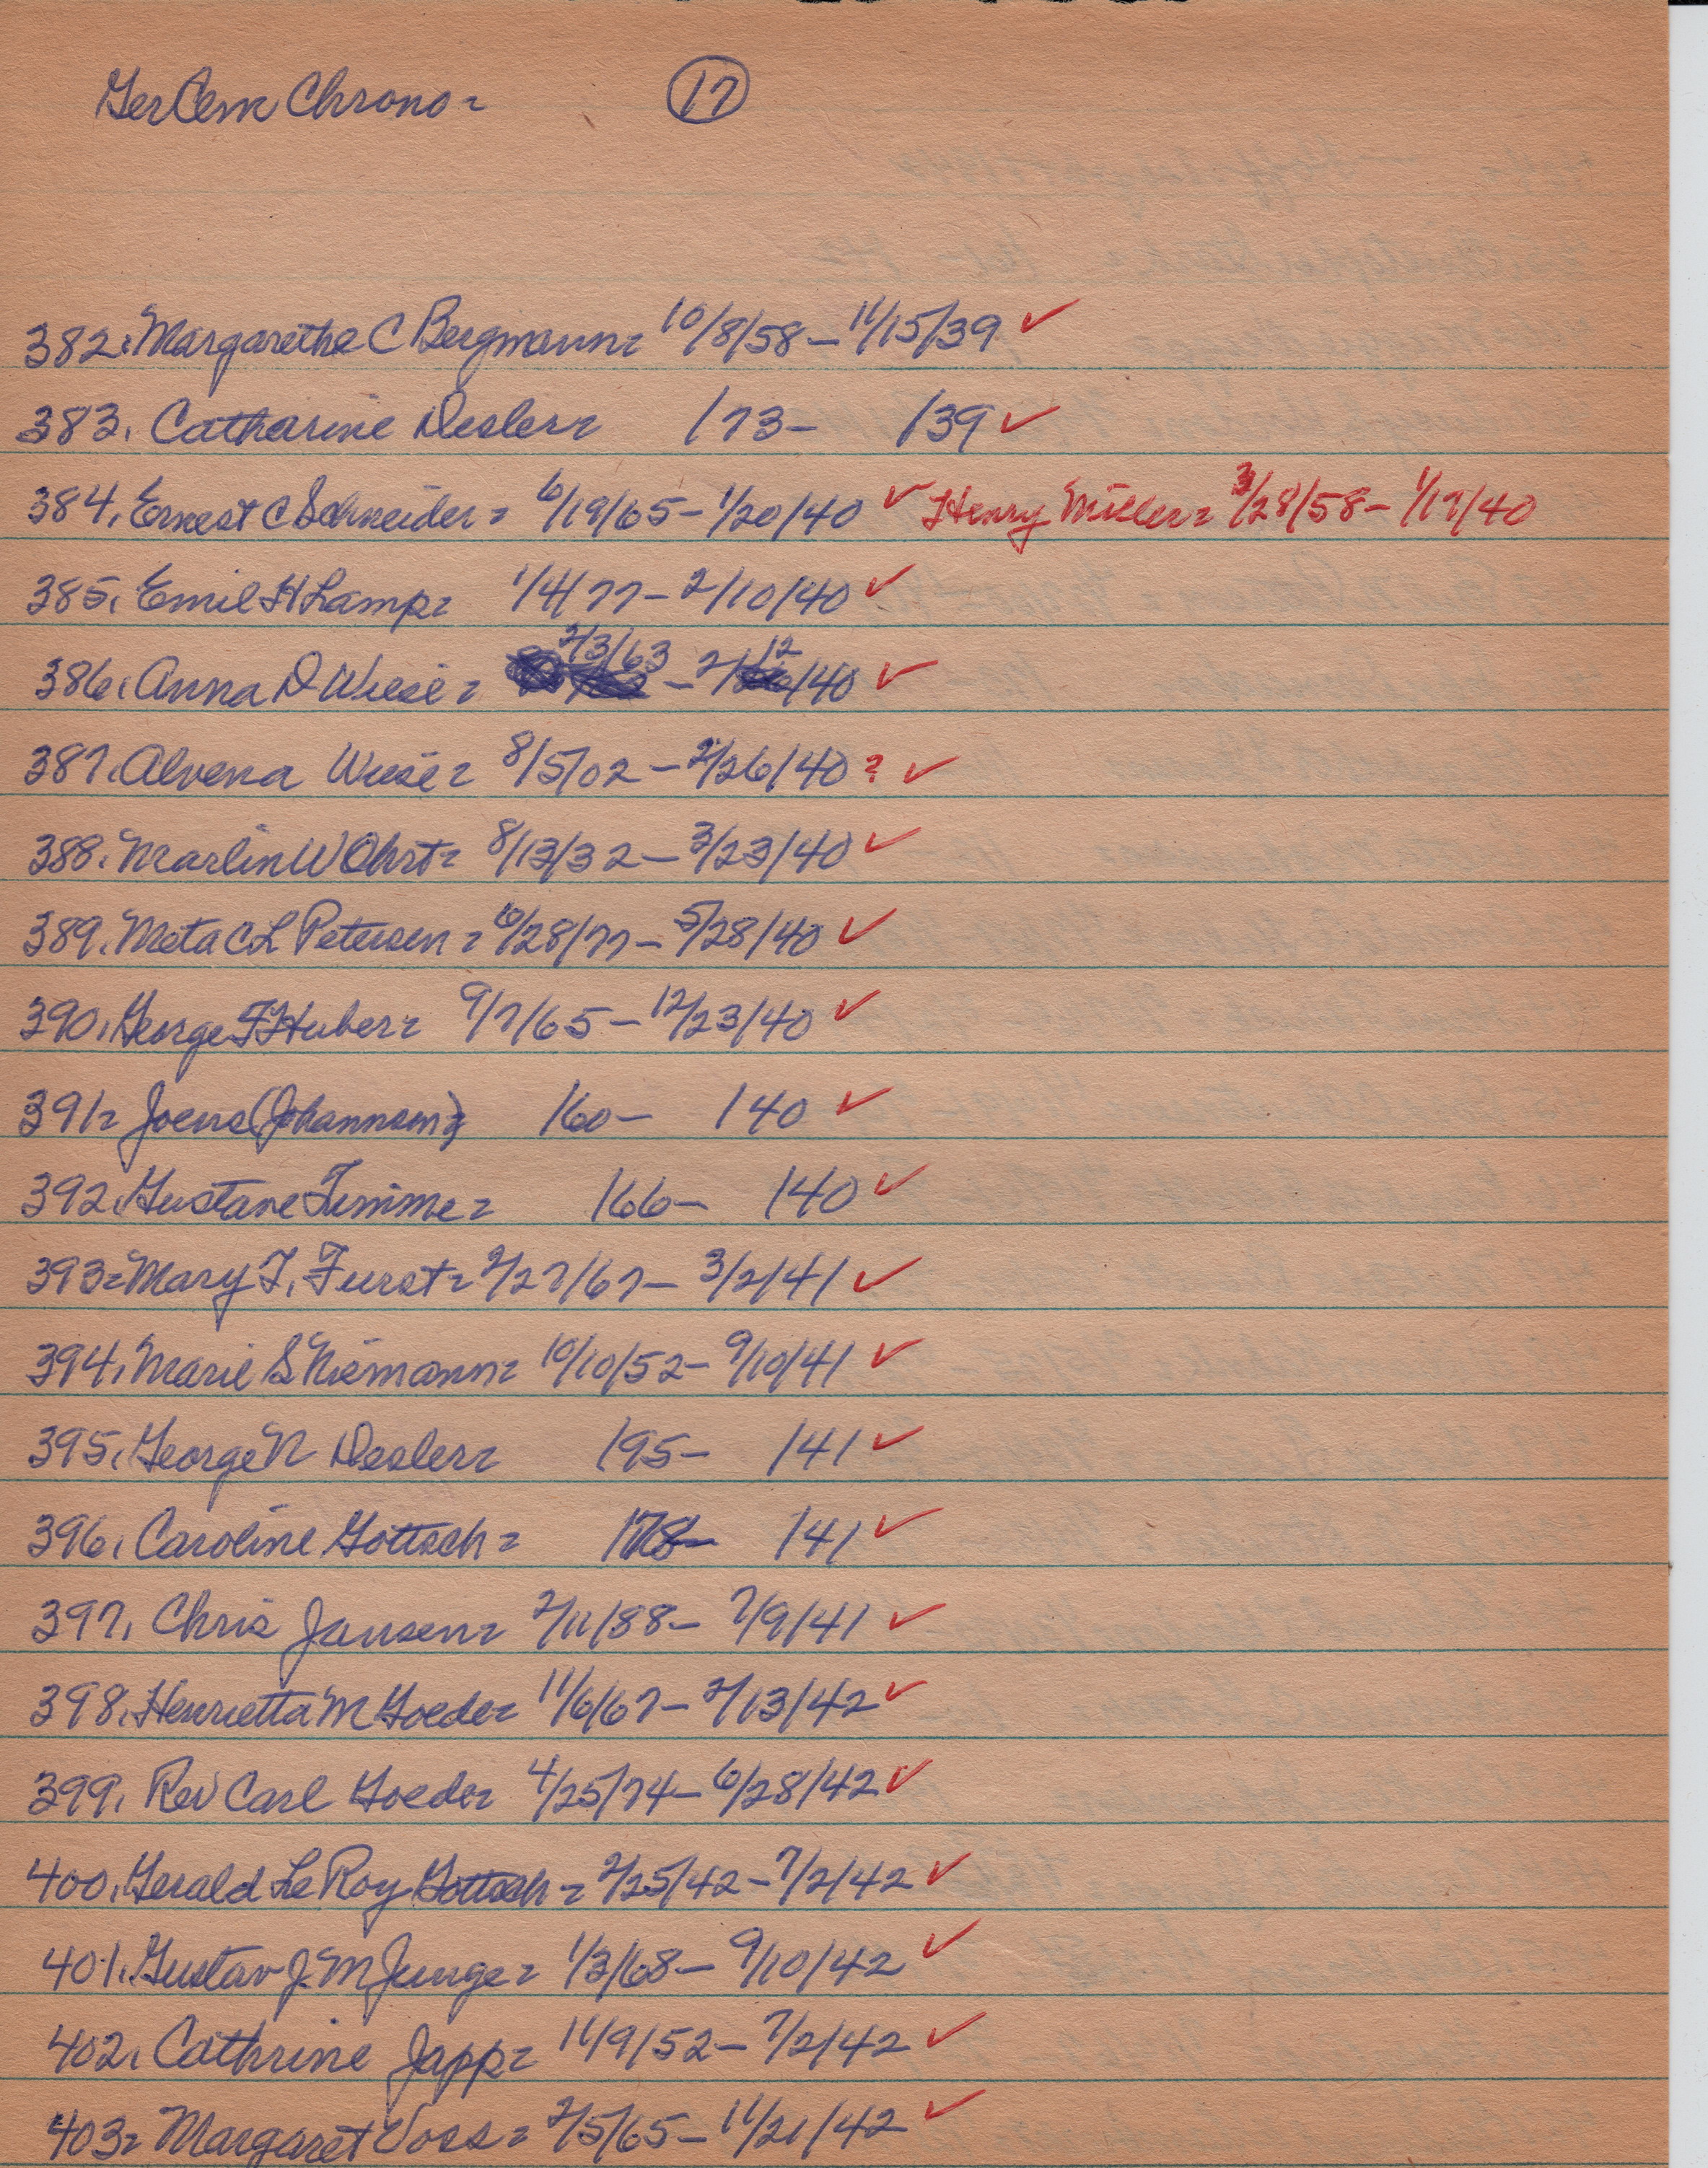 GerCem Chrono= 17
382. Margarethe C Bergmann= 10/8/58 – 11/15/39 ✓
383. Catharine Desler= /73 – /39 ✓
384. Ernest C Schneider= 6/19/65 – 1/20/40 ✓ Henry Miller= 3/28/58 – 1/17/40
385. Emil H Lamp= 1/4/77 – 2/10/40 ✓
386. Anna D Wiese= 2/3/63 – 2/12/40 ✓
387. Alvena Wiese= 8/5/02 – 2/26/40 ? ✓
388. Marlin W Ohrt= 8/13/32 – 3/23/40 ✓
389. Meta C L Petersen= 6/28/77 – 5/28/40 ✓
390. George F Huber= 9/7/65 – 12/23/40 ✓
391= Joens (Johannsen)= /60 – /40 ✓
392. Gustave Timme= /66 – /40 ✓
393= Mary F. Furst= 2/27/67 – 3/2/41 ✓
394. Marie S Niemann= 10/10/52 – 9/10/41 ✓
395. George N Desler= /95 – /41 ✓
396. Caroline Gottsch= /78 – /41 ✓
397. Chris Jansen= 2/11/88 – 7/9/41 ✓
398. Henrietta M Goede= 11/6/67 – 2/13/42 ✓
399. Rev Carl Goede= 4/25/74 – 6/28/42 ✓
400. Gerald Le Roy Gottsch= 2/25/42 – 7/2/42 ✓
401. Gustav J. M Junge= 1/3/68 – 9/10/42 ✓
402. Cathrine Japp= 11/9/52 – 7/2/42 ✓
403= Margaret Voss= 2/5/65 – 11/21/42 ✓